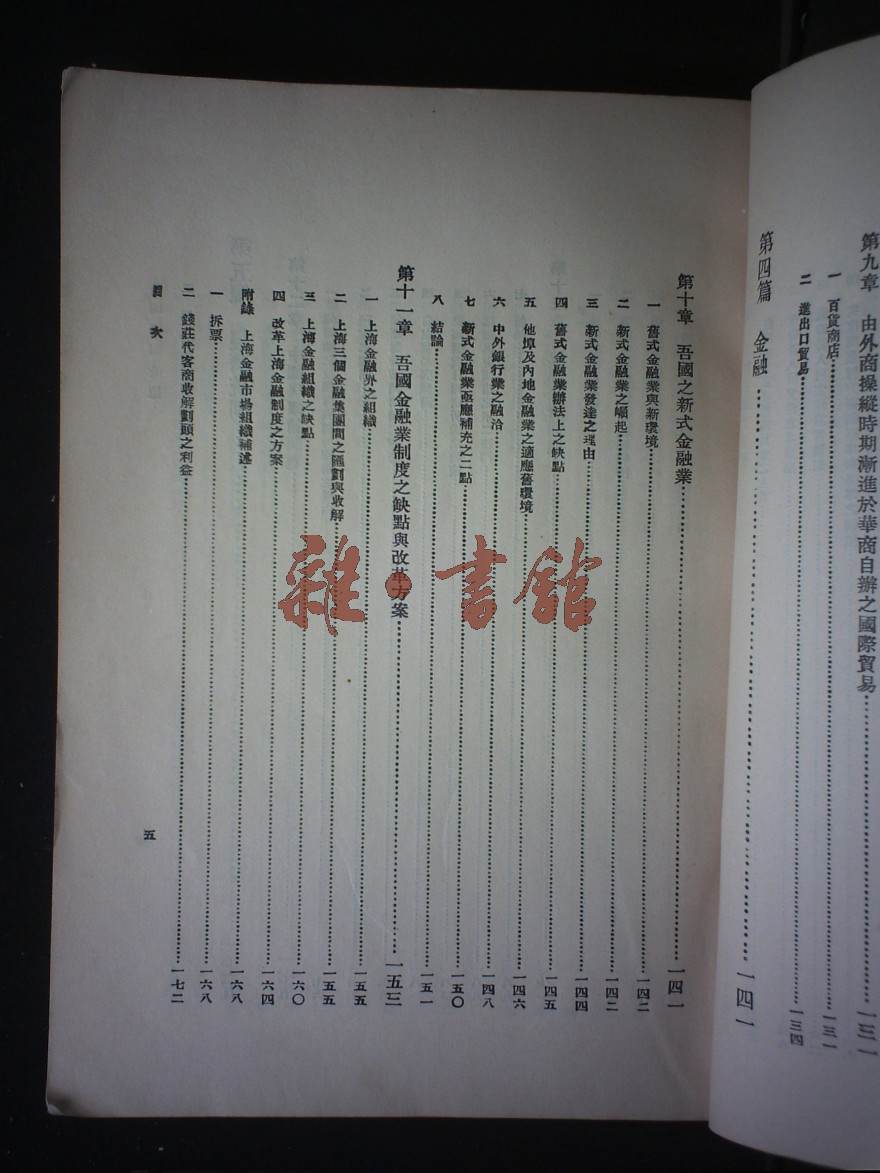 第九章　由外商操縱時期漸進於華商自辦之國際貿易……一三一
一　百貨商店……一三一
二　進出口貿易……一三四
第四篇　金融……一四一
第十章　吾國之新式金融業……一四一
一　舊式金融業與新環境……一四二
二　新式金融業之崛起……一四二
三　新式金融業發達之理由……一四四
四　舊式金融業辦法上之缺點……一四五
五　他埠及內地金融業之適應舊環境……一四六
六　中外銀行業之融洽……一四八
七　新式金融業亟應補充之二點……一五〇
八　結論……一五一
第十一章　吾國金融業制度之缺點與改革方案……一五三
一　上海金融界之組織……一五五
二　上海三個金融集團間之匯劃與收解……一五五
三　上海金融組織之缺點……一六〇
四　改革上海金融制度之方案……一六四
附錄　上海金融市場組織補述……一六八
一　拆票……一六八
二　錢莊代客商收解劃頭之利益……一七二
目次
五
雜·書館